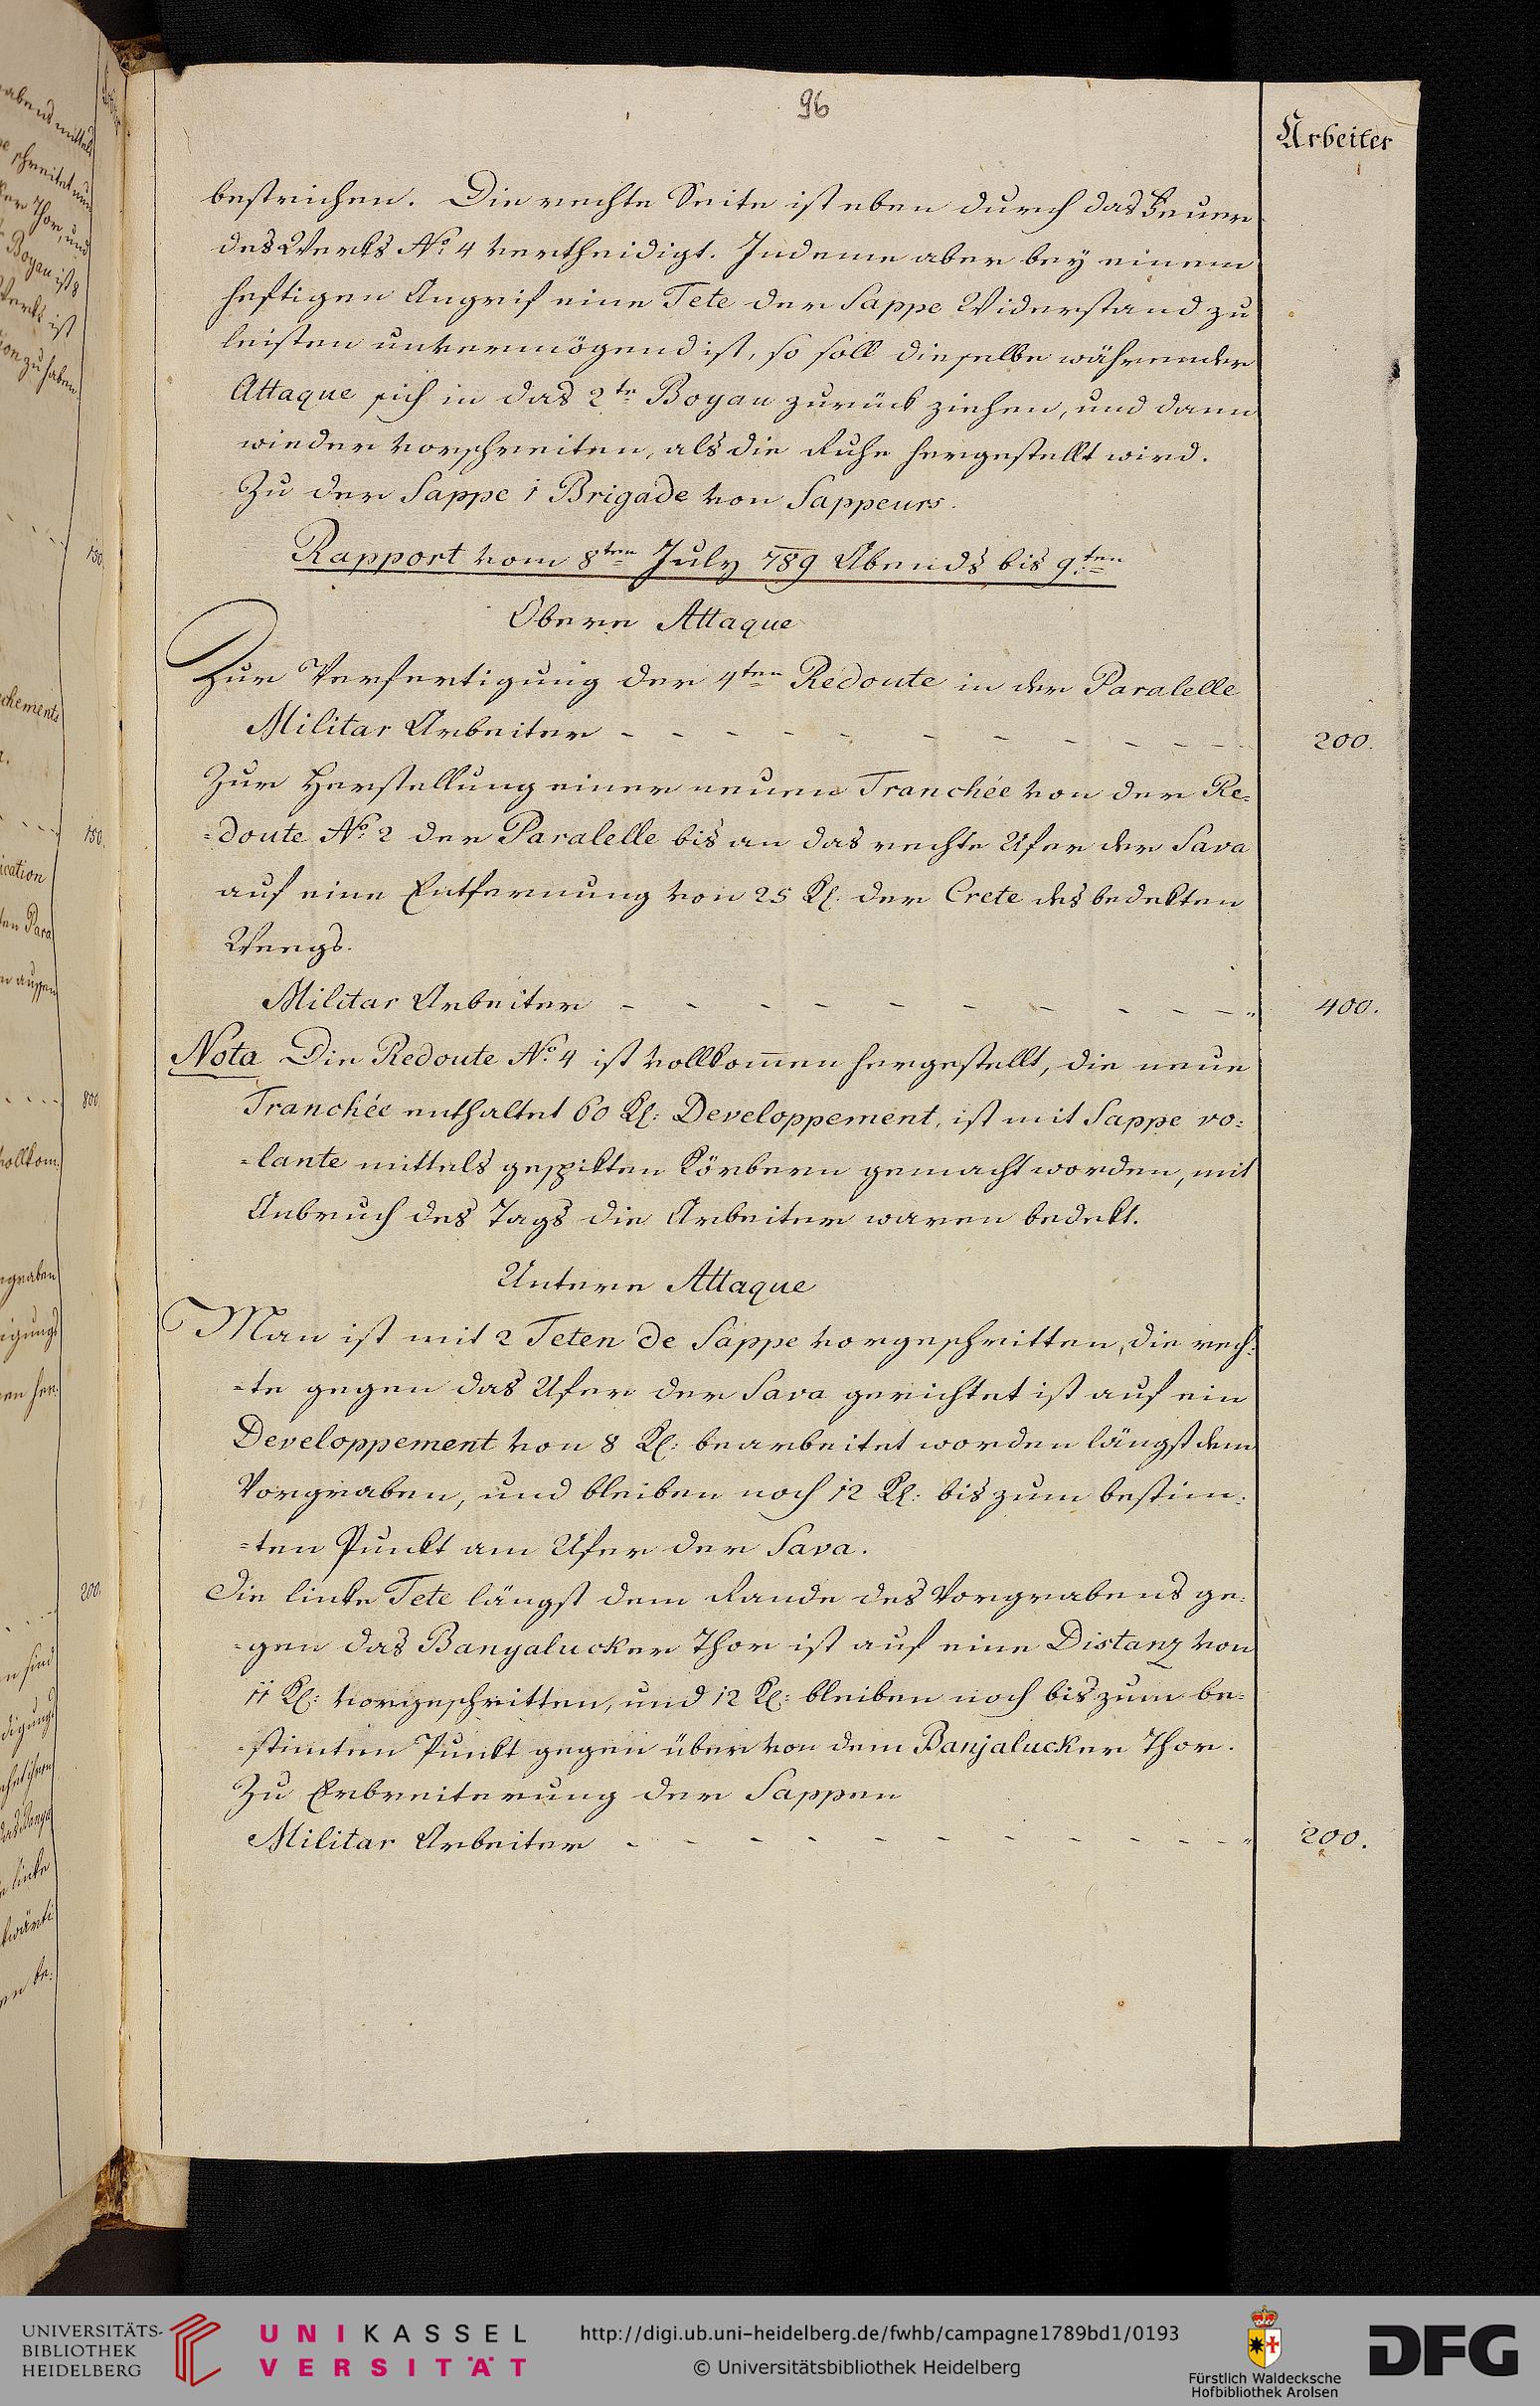 96
Arbeiter
bestrichen. Die rechte Seite ist eben durch das Feuer
des Werks No. 4 vertheidigt. Indeme aber bey einem
heftigen Angrif eine Tete der Sappe Widerstand zu
leisten unvermögend ist, so soll dieselbe während der
Attaque sich in das 2te Boyau zurück ziehen, und dann
wieder vorschreiten, als die Ruhe hergestellt wird.
Zu der Sappe 1 Brigade von Sappeurs.
Rapport vom 8ten July 789 Abends bis 9ten
Obere Attaque
Zur Verfertigung der 4ten Redoute in der Paralelle
Militar Arbeiter - - - - - - - - - - 200.
Zur Herstellung einer neuen Tranchée von der Re=
=doute No. 2 der Paralelle bis an das rechte Ufer der Sava
auf eine Entfernung von 25 Kl. der Crete des bedekten
Weegs.
Militar Arbeiter - - - - - - - - - - 400.
Nota Die Redoute No. 4 ist vollkom̅en hergestellt, die neue
Tranchée enthaltet 60 Kl: Developpement, ist mit Sappe vo:
=lante mittels gespikten Körbern gemacht worden, mit
Anbruch des Tags die Arbeiter waren bedekt.
Untere Attaque
Man ist mit 2 Teten de Sappe vorgeschritten, die rech:
=te gegen das Ufer der Sava gerichtet ist auf ein
Developpement von 8 Kl: bearbeitet worden längst dem
Vorgraben, und bleiben noch 12 Kl: bis zum bestim:
=ten Punkt am Ufer der Sava.
Die linke Tete längst dem Rande des Vorgrabens ge:
=gen das Banyalucker Thor ist auf eine Distanz von
11 Kl: vorgeschritten, und 12 Kl: bleiben noch bis zum be=
=stimten Punkt gegen über von dem Banjalucker Thor.
Zu Erbreiterung der Sappen
Militar Arbeiter - - - - - - - - - - 200.
UNIVERSITÄTS-
BIBLIOTHEK
HEIDELBERG
UNIKASSEL
VERSITÄT
http://digi.ub.uni-heidelberg.de/fwhb/campagne1789bd1/0193
© Universitätsbibliothek Heidelberg
Fürstlich Waldecksche
Hofbibliothek Arolsen
DFG